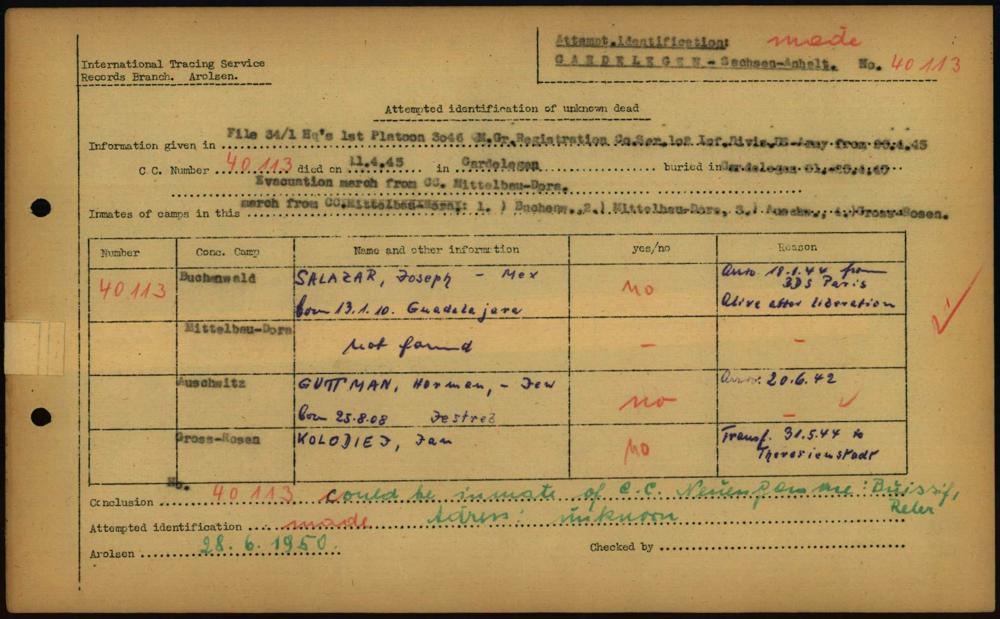 Attempt.identification: made
International Tracing Service
GARDELEGEN - Sachsen-Anhalt. No. 40113
Records Branch. Arolsen.
Attempted identification of unknown dead
Information given in File 34/1 Hq's 1st Platoon 3046 QM.Gr.Registration Co.
C.C. Number 40113 died on 11.4.45 in Gardelegen buried in Gardelegen
Evacuation march from CC. Mittelbau-Dora.
Inmates of camps in this march from CC.Mittelbau-Dora: 1.) Buchenw., 2.) Mittelbau-Dora, 3.) Auschw., 4.)Gross-Rosen.
Number Conc. Camp Name and other information yes/no Reason
40113 Buchenwald SALAZAR, Joseph - Mex no Arriv. 18.1.44 from
BDS Paris
born 13.1.10. Guadelajara Alive after liberation
Mittelbau-Dora not found - -
Auschwitz GUTTMAN, Herman, - Jew no Arriv. 20.6.42
born 25.8.08 -
Gross-Rosen KOLODIEJ, Jan no Transf. 31.5.44 to
Theresienstadt
Conclusion No. 40113 could be inmate of C.C. Neuengamme: Buissif,
Attempted identification made Adress: unknoon
Arolsen 28.6.1950. Checked by